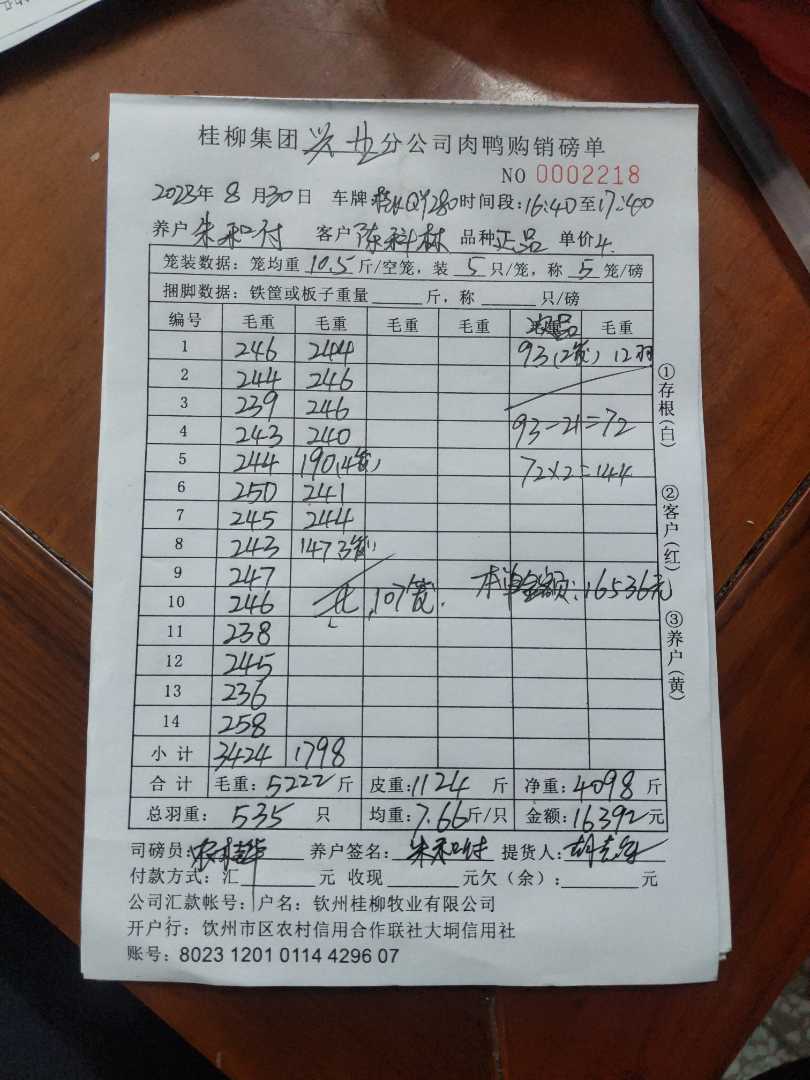 桂柳集团 分公司肉鸭购销磅单
NO 0002218
2023年 8 月30日 车牌 QY280时间段:16:40至17:40
养户 朱和付 客户 陈科林 品种 正品 单价 4.
笼装数据: 笼均重 10.5 斤/空笼, 装 5 只/笼, 称 5 笼/磅
捆脚数据: 铁筐或板子重量 斤, 称 只/磅
编号 毛重 毛重 毛重 毛重 毛重
1 246 244 93(2笼) 12羽
2 244 246
3 239 246
4 243 240 93-21=72
5 244 190(4笼) 72×2=144
6 250 241
7 245 244
8 243 147 3笼)
9 247
10 246 共 107笼. 本单金额:16536元
11 238
12 245
13 236
14 258
小 计 3424 1798
合 计 毛重: 5222 斤 皮重: 1124 斤 净重: 4098 斤
总羽重: 535 只 均重: 7.66 斤/只 金额: 16392 元
司磅员: 养户签名: 朱和付 提货人:
付款方式: 汇 元 收现 元欠(余): 元
公司汇款帐号: 户名: 钦州桂柳牧业有限公司
开户行: 钦州市区农村信用合作联社大垌信用社
账号: 8023 1201 0114 4296 07
①存根(白)
②客户(红)
③养户(黄)